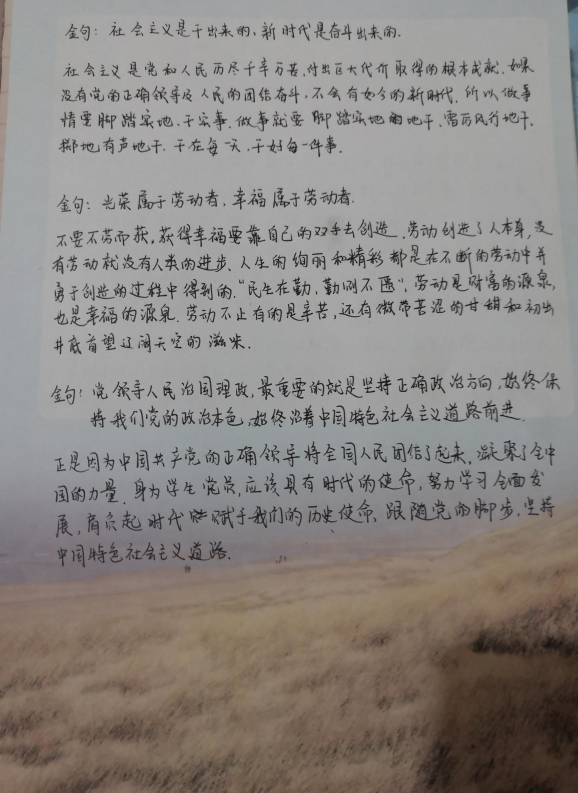 金句：社会主义是干出来的，新时代是奋斗出来的．
社会主义是党和人民历尽千辛万苦，付出巨大代价取得的根本成就．如果
没有党的正确领导及人民的团结奋斗，不会有如今的新时代．所以做事
情要脚踏实地、干实事．做事就要脚踏实地的地干、雷厉风行地干．
掷地有声地干，干在每一天，干好每一件事．
金句：光荣属于劳动者，幸福属于劳动者．
不要不劳而获，获得幸福要靠自己的双手去创造．劳动创造了人本身，没
有劳动就没有人类的进步、人生的绚丽和精彩都是在不断的劳动中并
勇于创造的过程中得到的．“民生在勤，勤则不匮”，劳动是财富的源泉，
也是幸福的源泉．劳动不止有的是辛苦，还有微带苦涩的甘甜和初出
井底首望辽阔天空的滋味．
金句：党领导人民治国理政，最重要的就是坚持正确政治方向，始终保
持我们党的政治本色，始终沿着中国特色社会主义道路前进．
正是因为中国共产党的正确领导将全国人民团结了起来，凝聚了全中
国的力量．身为学生党员，应该具有时代的使命，努力学习全面发
展，肩负起时代赋予我们的历史使命，跟随党的脚步，坚持
中国特色社会主义道路．